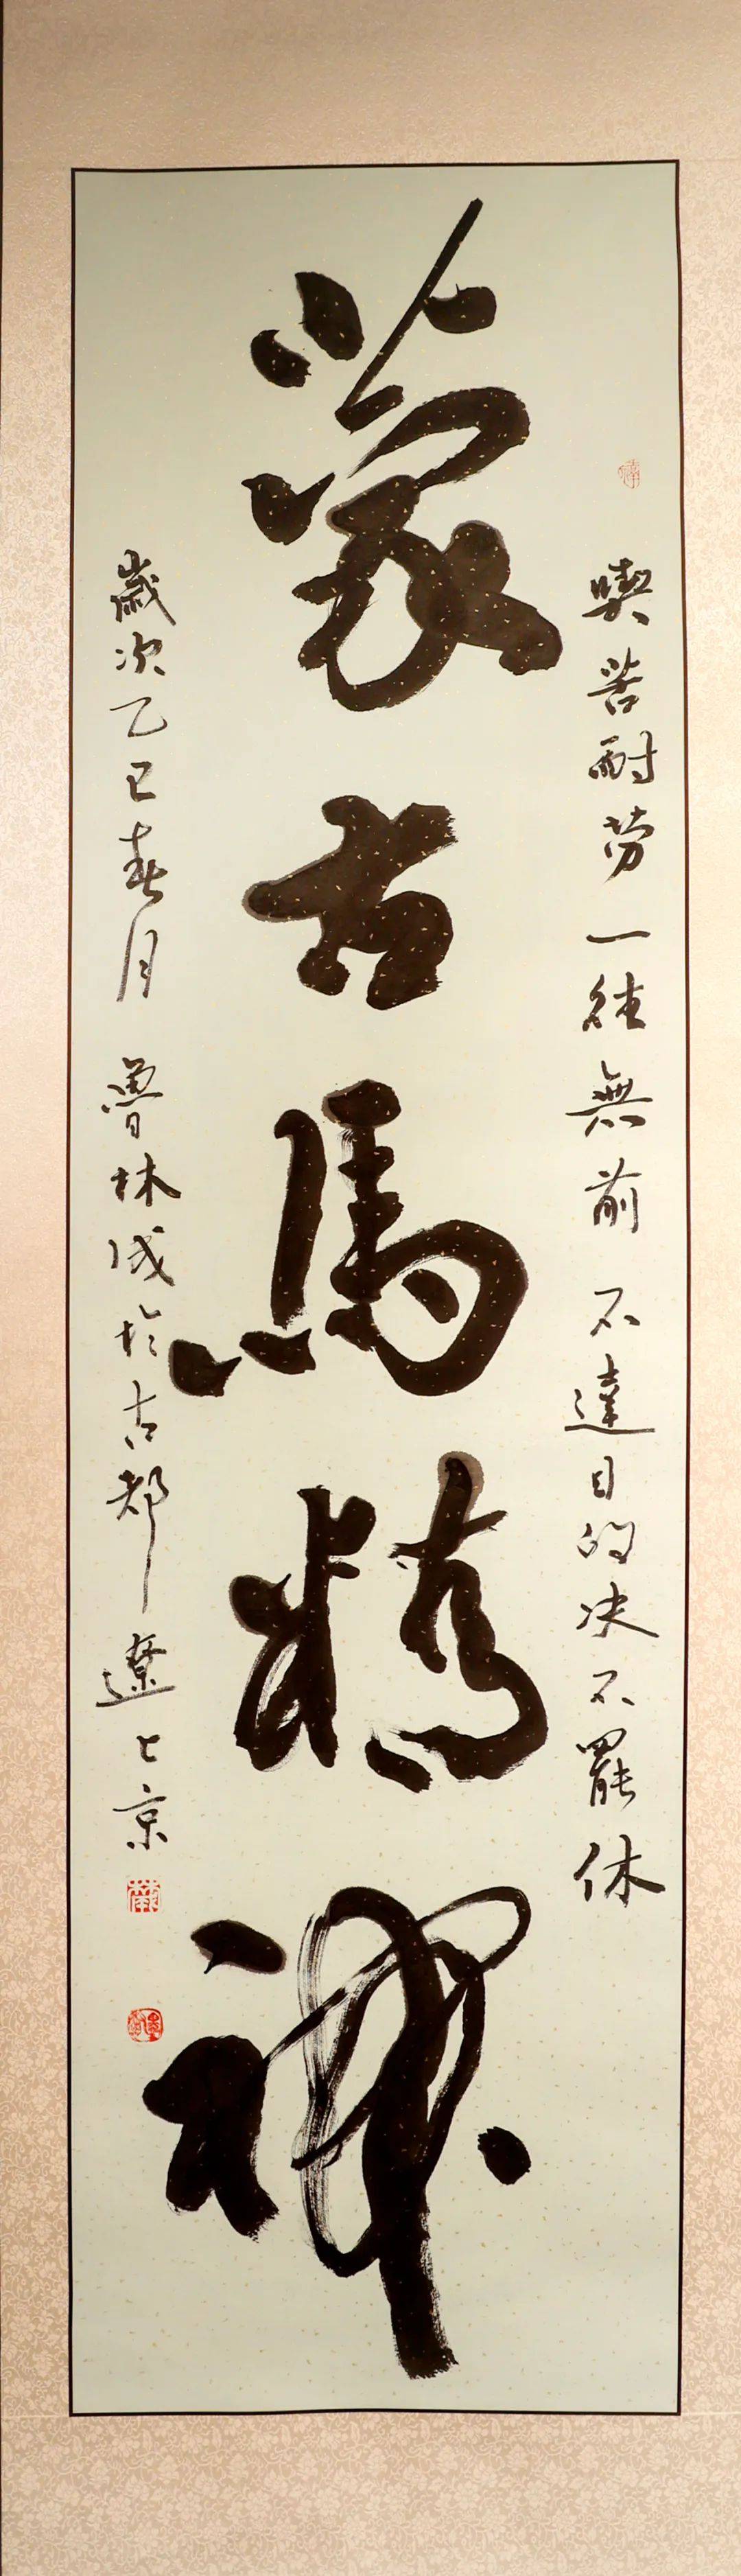 喫苦耐劳一往無前不達目的决不罷休
蒙古馬精神
歲次乙巳春月鲁林成於古都遼上京